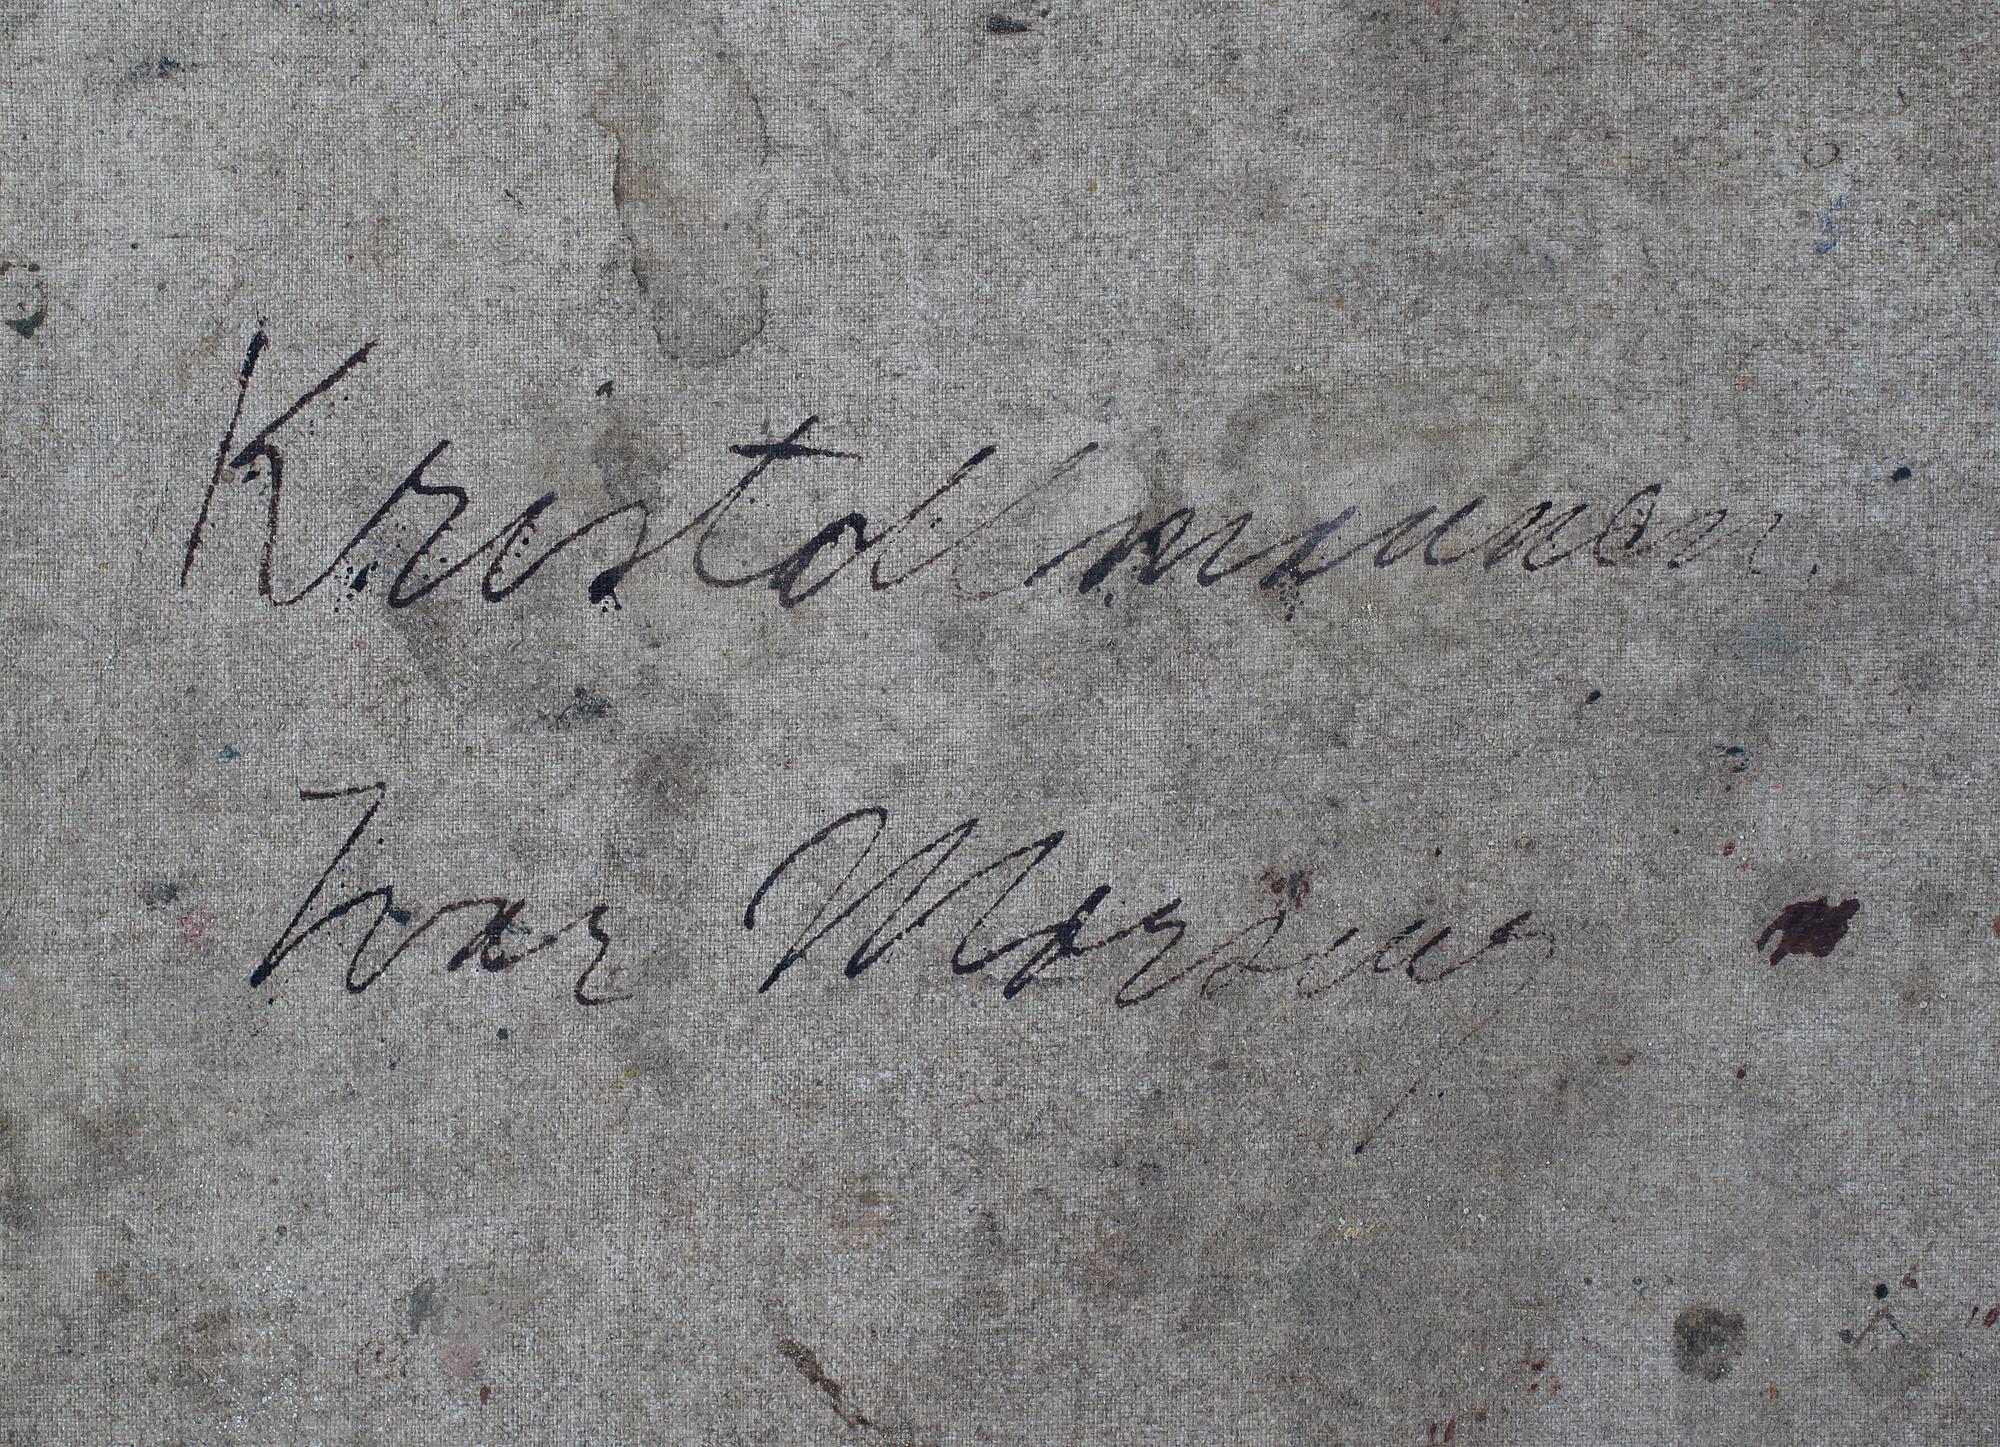 Kristallmannen.
Ivar Morsing